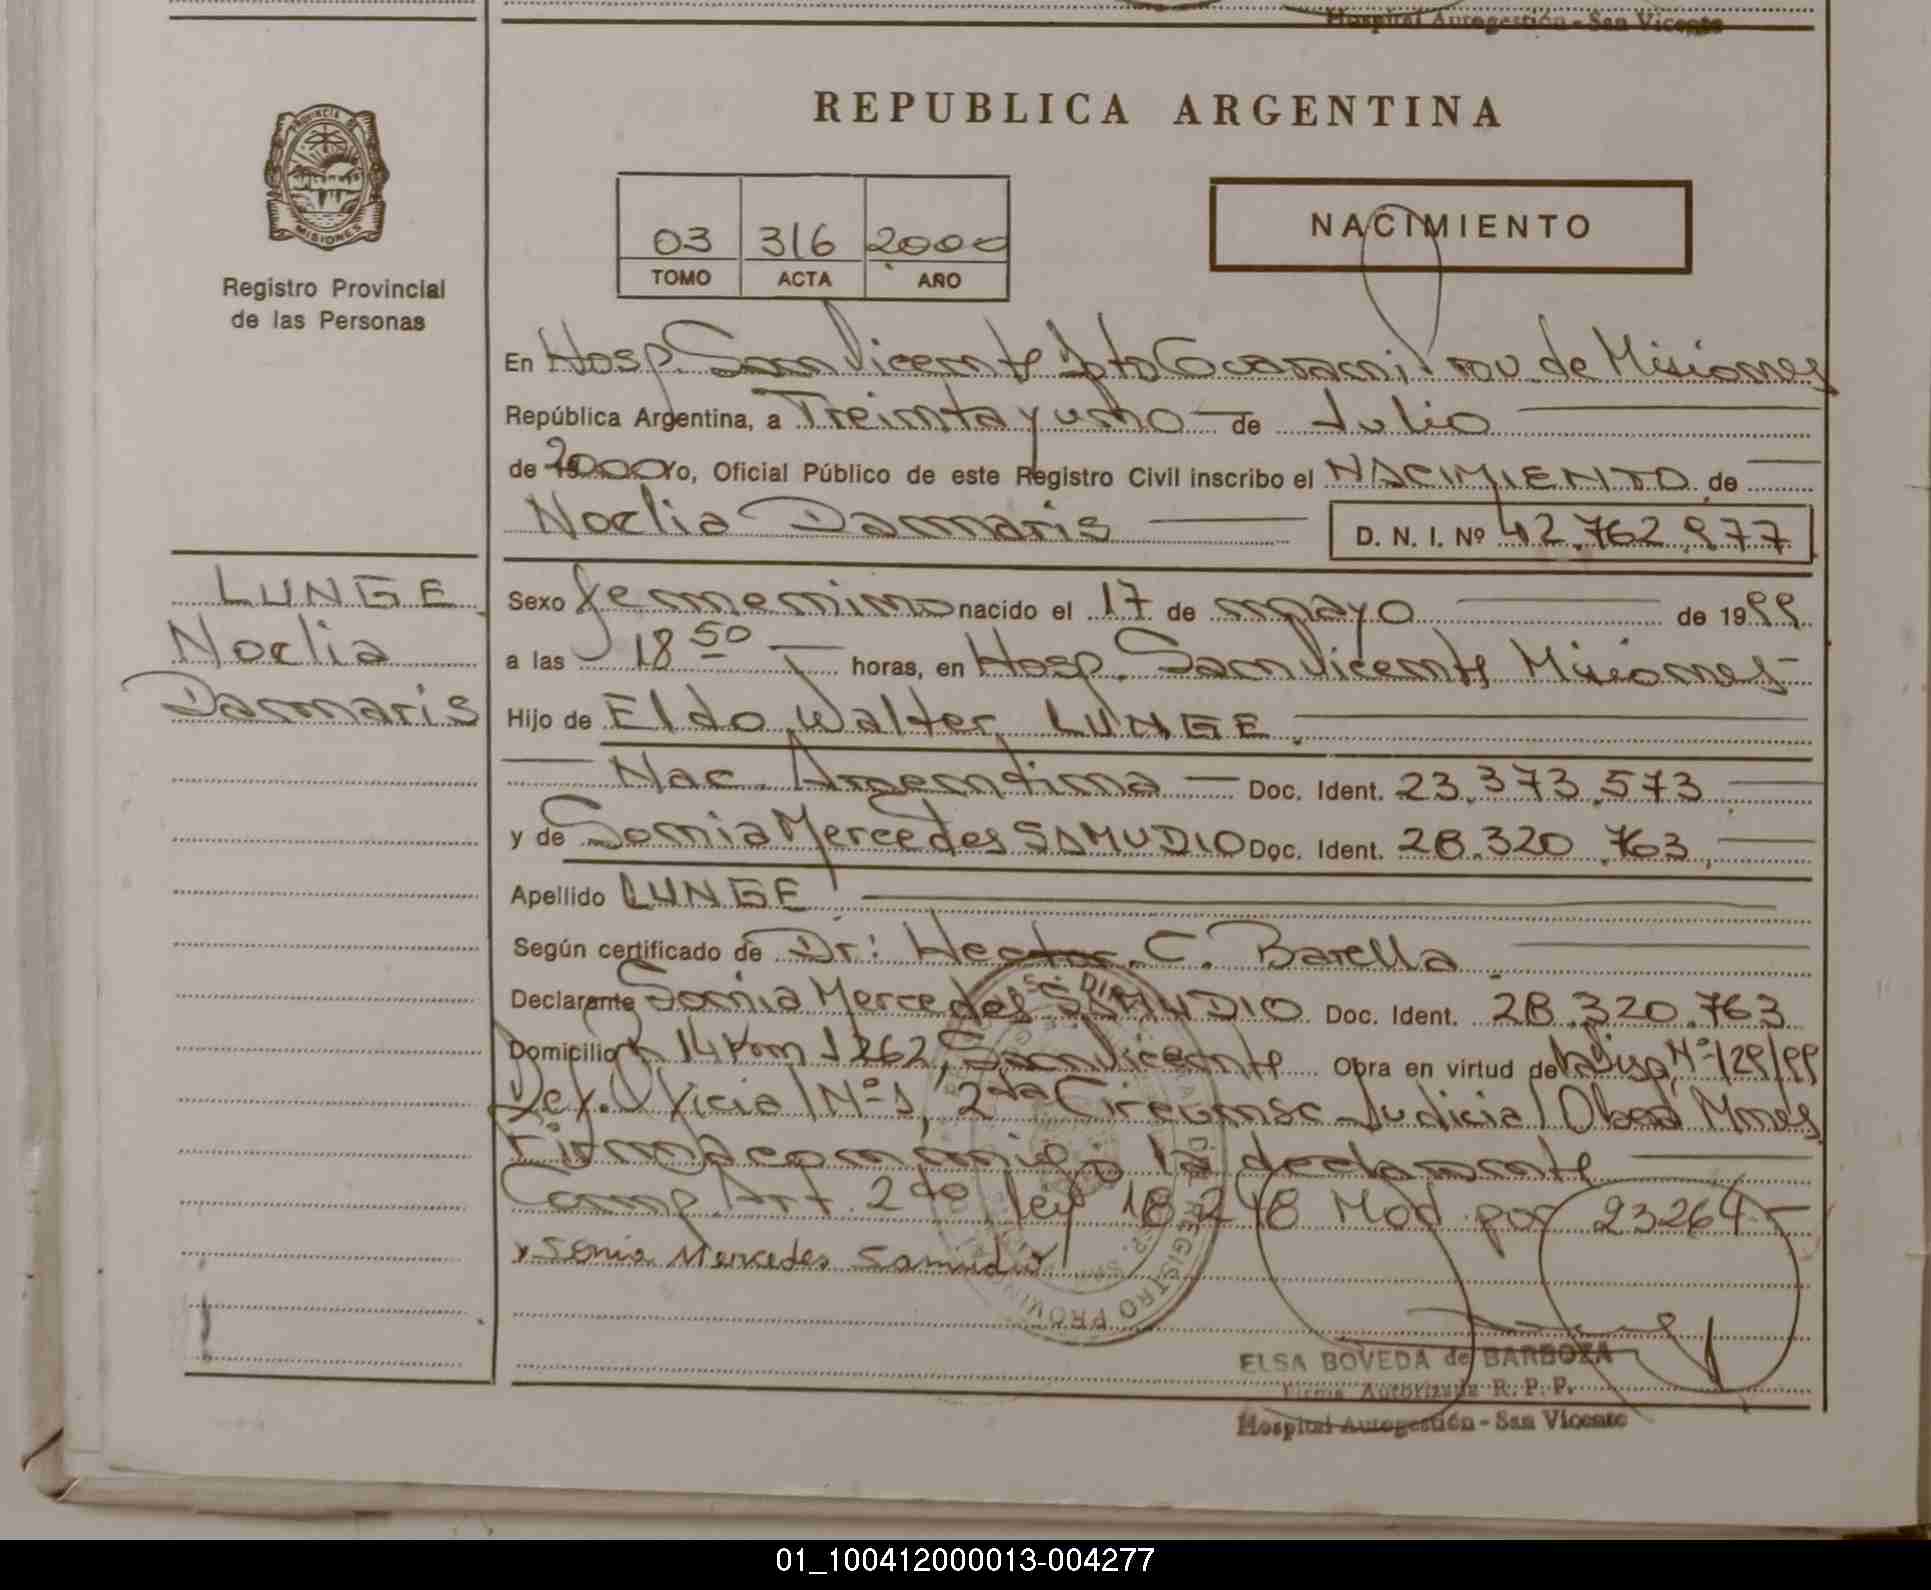 Hospital Autogestión - San Vicente
REPUBLICA ARGENTINA
PROVINCIA DE
MISIONES
Registro Provincial
de las Personas
03 316 2000
TOMO ACTA AÑO
NACIMIENTO
En Hosp. San Vicente Dpto Guarani Prov. de Misiones
República Argentina, a Treinta y uno de Julio
de 2000 Yo, Oficial Público de este Registro Civil inscribo el NACIMIENTO de
Noelia Damaris D. N. I. Nº 42.762.977
LUNGE
Noelia
Damaris
Sexo femenino nacido el 17 de mayo de 1999
a las 18 50 horas, en Hosp. San Vicente Misiones
Hijo de Eldo Walter LUNGE
Nac. Argentina Doc. Ident. 23.373.573
y de Sonia Mercedes SAMUDIO Doc. Ident. 28.320.763
Apellido LUNGE
Según certificado de Dr: Hector C. Barella
Declarante Sonia Mercedes SAMUDIO Doc. Ident. 28.320.763
Domicilio 14 Km 1262, San Vicente Obra en virtud de la Disp. Nº 129/99
Def. Oficial Nº 1, 2da Circunsc Judicial Oberá Mnes
Firma conmigo la declarante
Comp. Art. 2do ley 18248 Mod por 23264
x Sonia Mercedes Samudio
ELSA BOVEDA de BARBOZA
Firma Autorizada R. P. P.
Hospital Autogestión - San Vicente
01_100412000013-004277